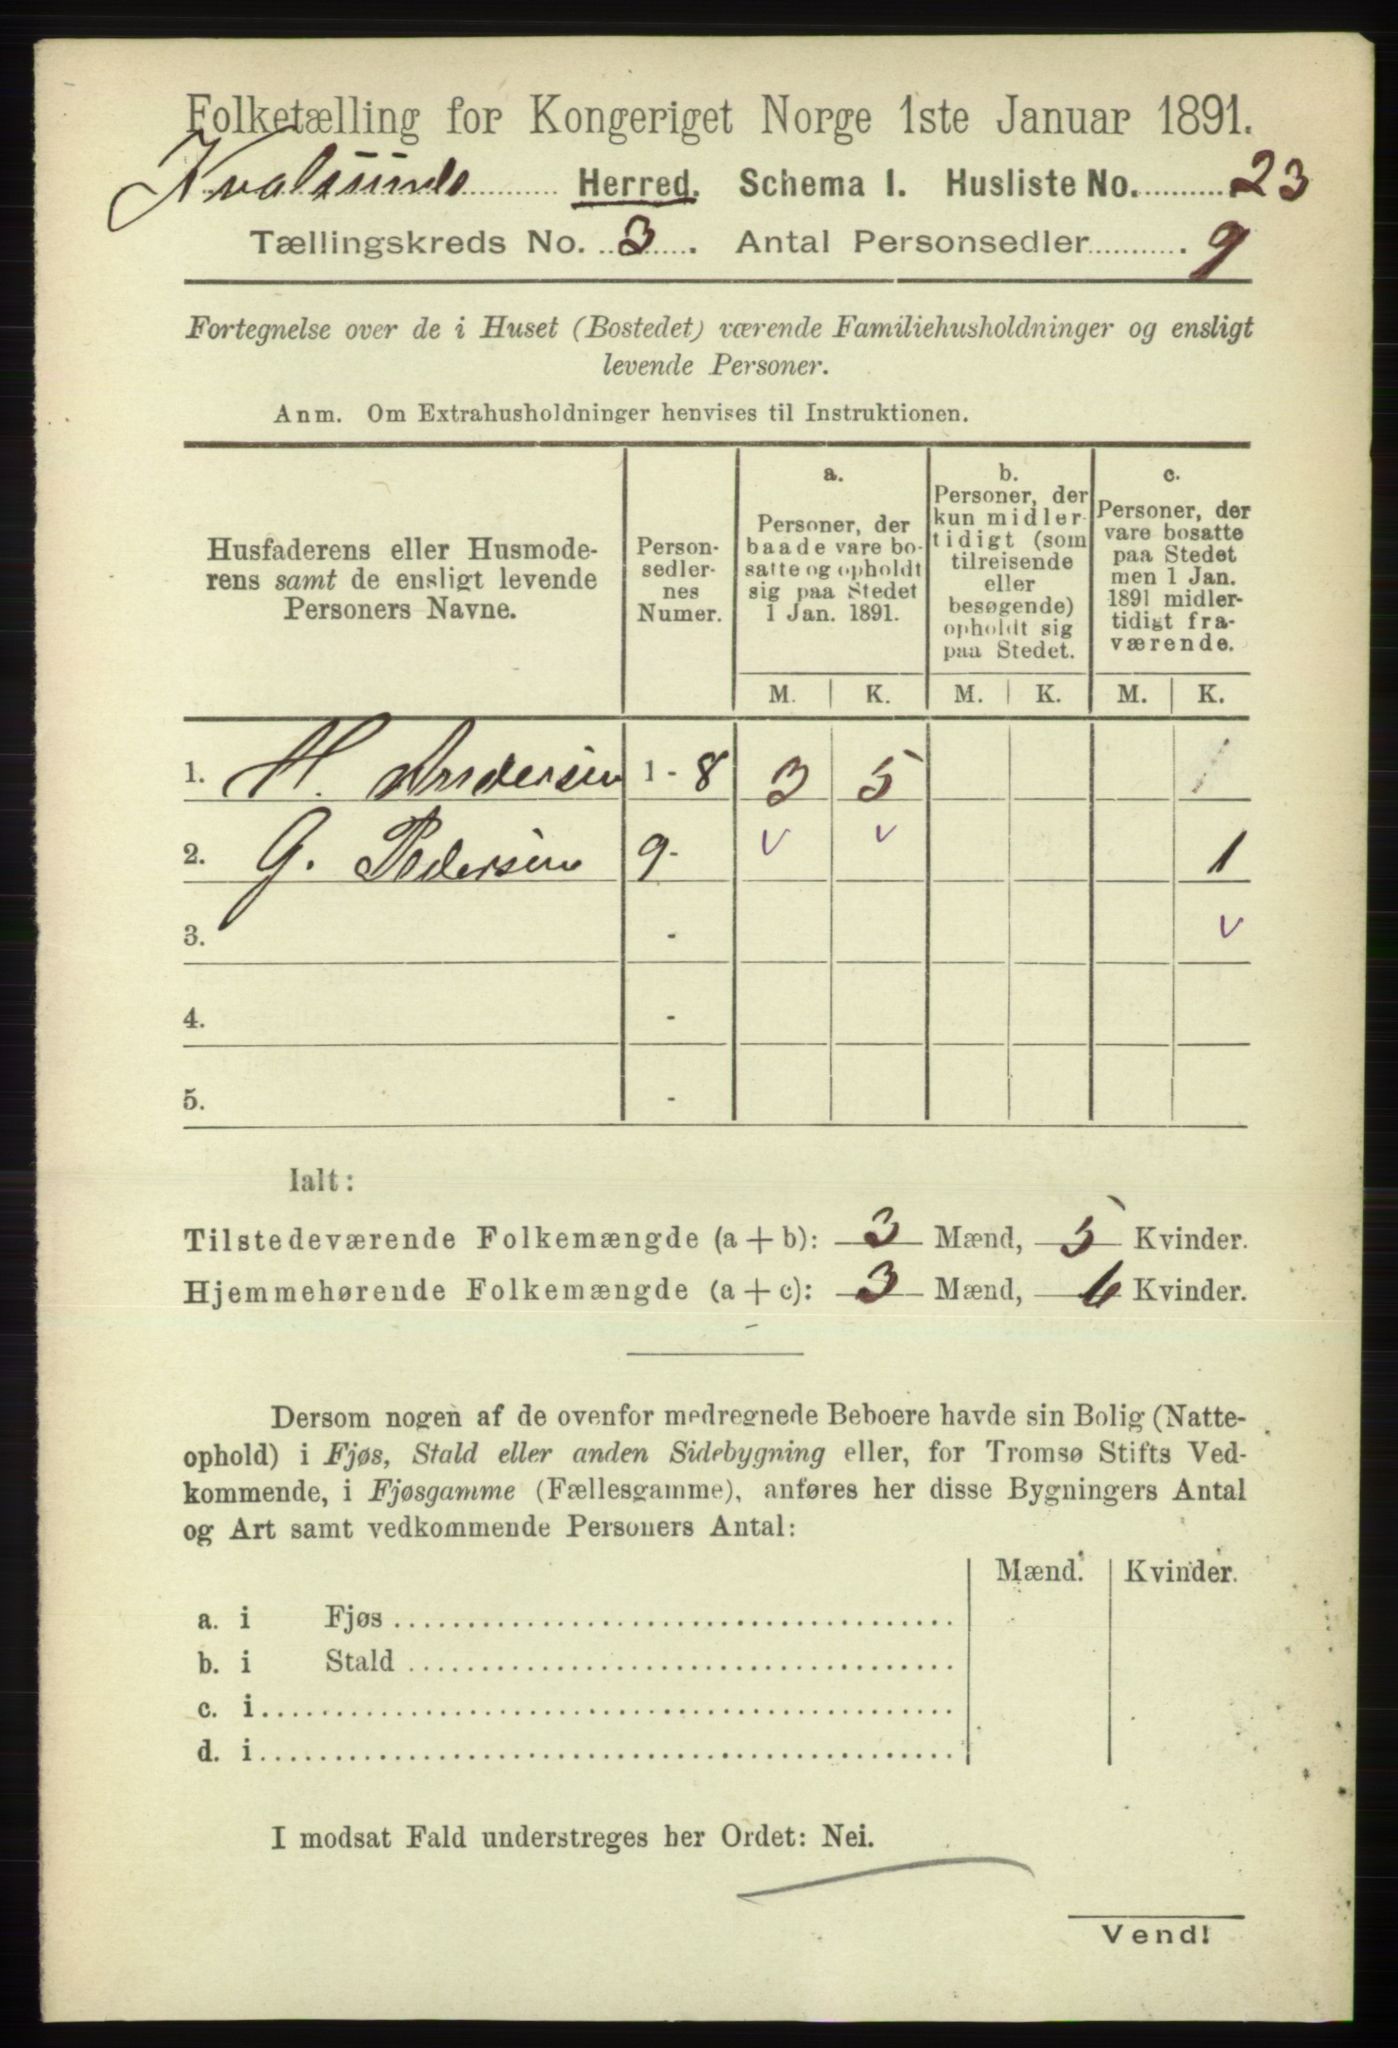 Folketælling for Kongeriget Norge 1ste Januar 1891.
Kvalsunds Herred. Schema I. Husliste No. 23
Tællingskreds No. 3. Antal Personsedler 9
Fortegnelse over de i Huset (Bostedet) værende Familiehusholdninger og ensligt
levende Personer.
Anm. Om Extrahusholdninger henvises til Instruktionen.
Husfaderens eller Husmode-
rens samt de ensligt levende
Personers Navne.
Person-
sedler-
nes
Numer.
a.
Personer, der
baade vare bo-
satte og opholdt
sig paa Stedet
1 Jan. 1891.
b.
Personer, der
kun midler-
tidigt (som
tilreisende
eller
besøgende)
opholdt sig
paa Stedet.
c.
Personer, der
vare bosatte
paa Stedet
men 1 Jan.
1891 midler-
tidigt fra-
værende.
M. K. M. K. M. K.
1. H. Andersen 1 - 8 3 5 1
2. G. Pedersen 9 - v v 1
3. - v
4. -
5. -
Ialt:
Tilstedeværende Folkemængde (a + b): 3 Mænd, 5 Kvinder.
Hjemmehørende Folkemængde (a + c): 3 Mænd, 6 Kvinder.
Dersom nogen af de ovenfor medregnede Beboere havde sin Bolig (Natte-
ophold) i Fjøs, Stald eller anden Sidebygning eller, for Tromsø Stifts Ved-
kommende, i Fjøsgamme (Fællesgamme), anføres her disse Bygningers Antal
og Art samt vedkommende Personers Antal:
Mænd. Kvinder.
a. i Fjøs
b. i Stald
c. i
d. i
I modsat Fald understreges her Ordet: Nei.
Vend!